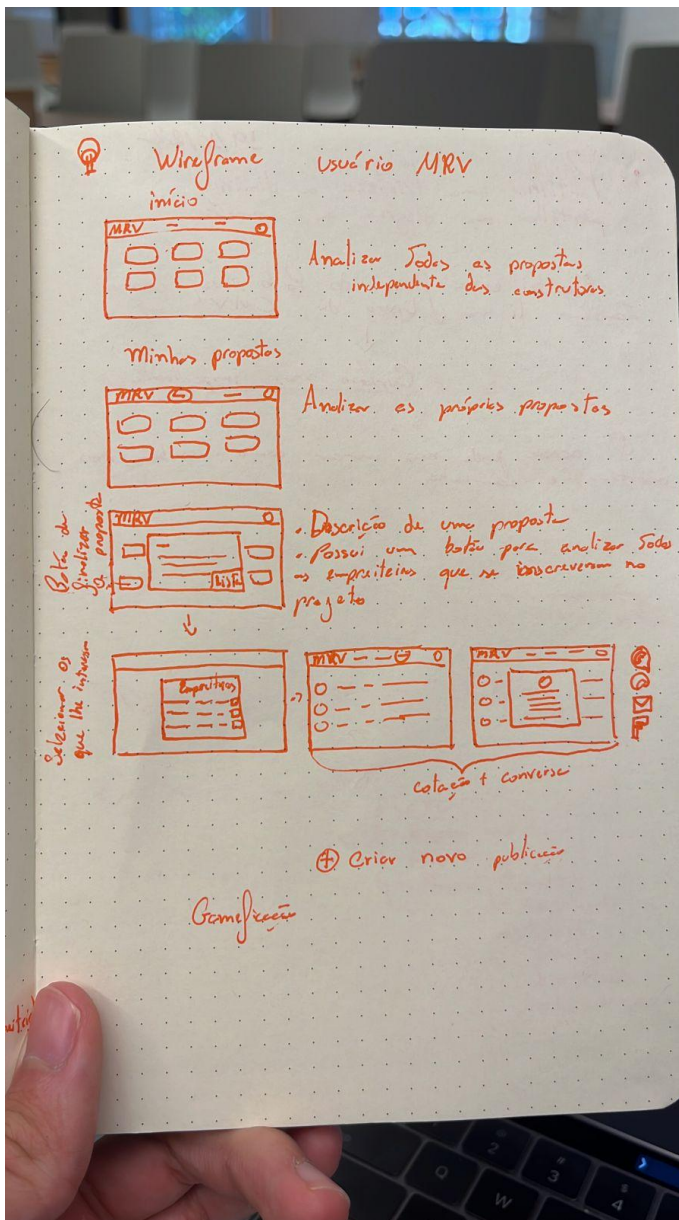 Wireframe usuário MRV
início
MRV
Analizar Todas as propostas
independente das construtoras
Minhas propostas
MRV
Analizar as próprias propostas
Botão de
finalizar
a proposta
MRV
Lista
. Descrição de uma proposta
. Possui um botão para analizar Todos
os empreiteiros que se inscreveram no
projeto
Selecionar os
que lhe interessam
Empreiteiros
MRV
MRV
cotação + conversa
+ Criar novo publicação
Gamificação